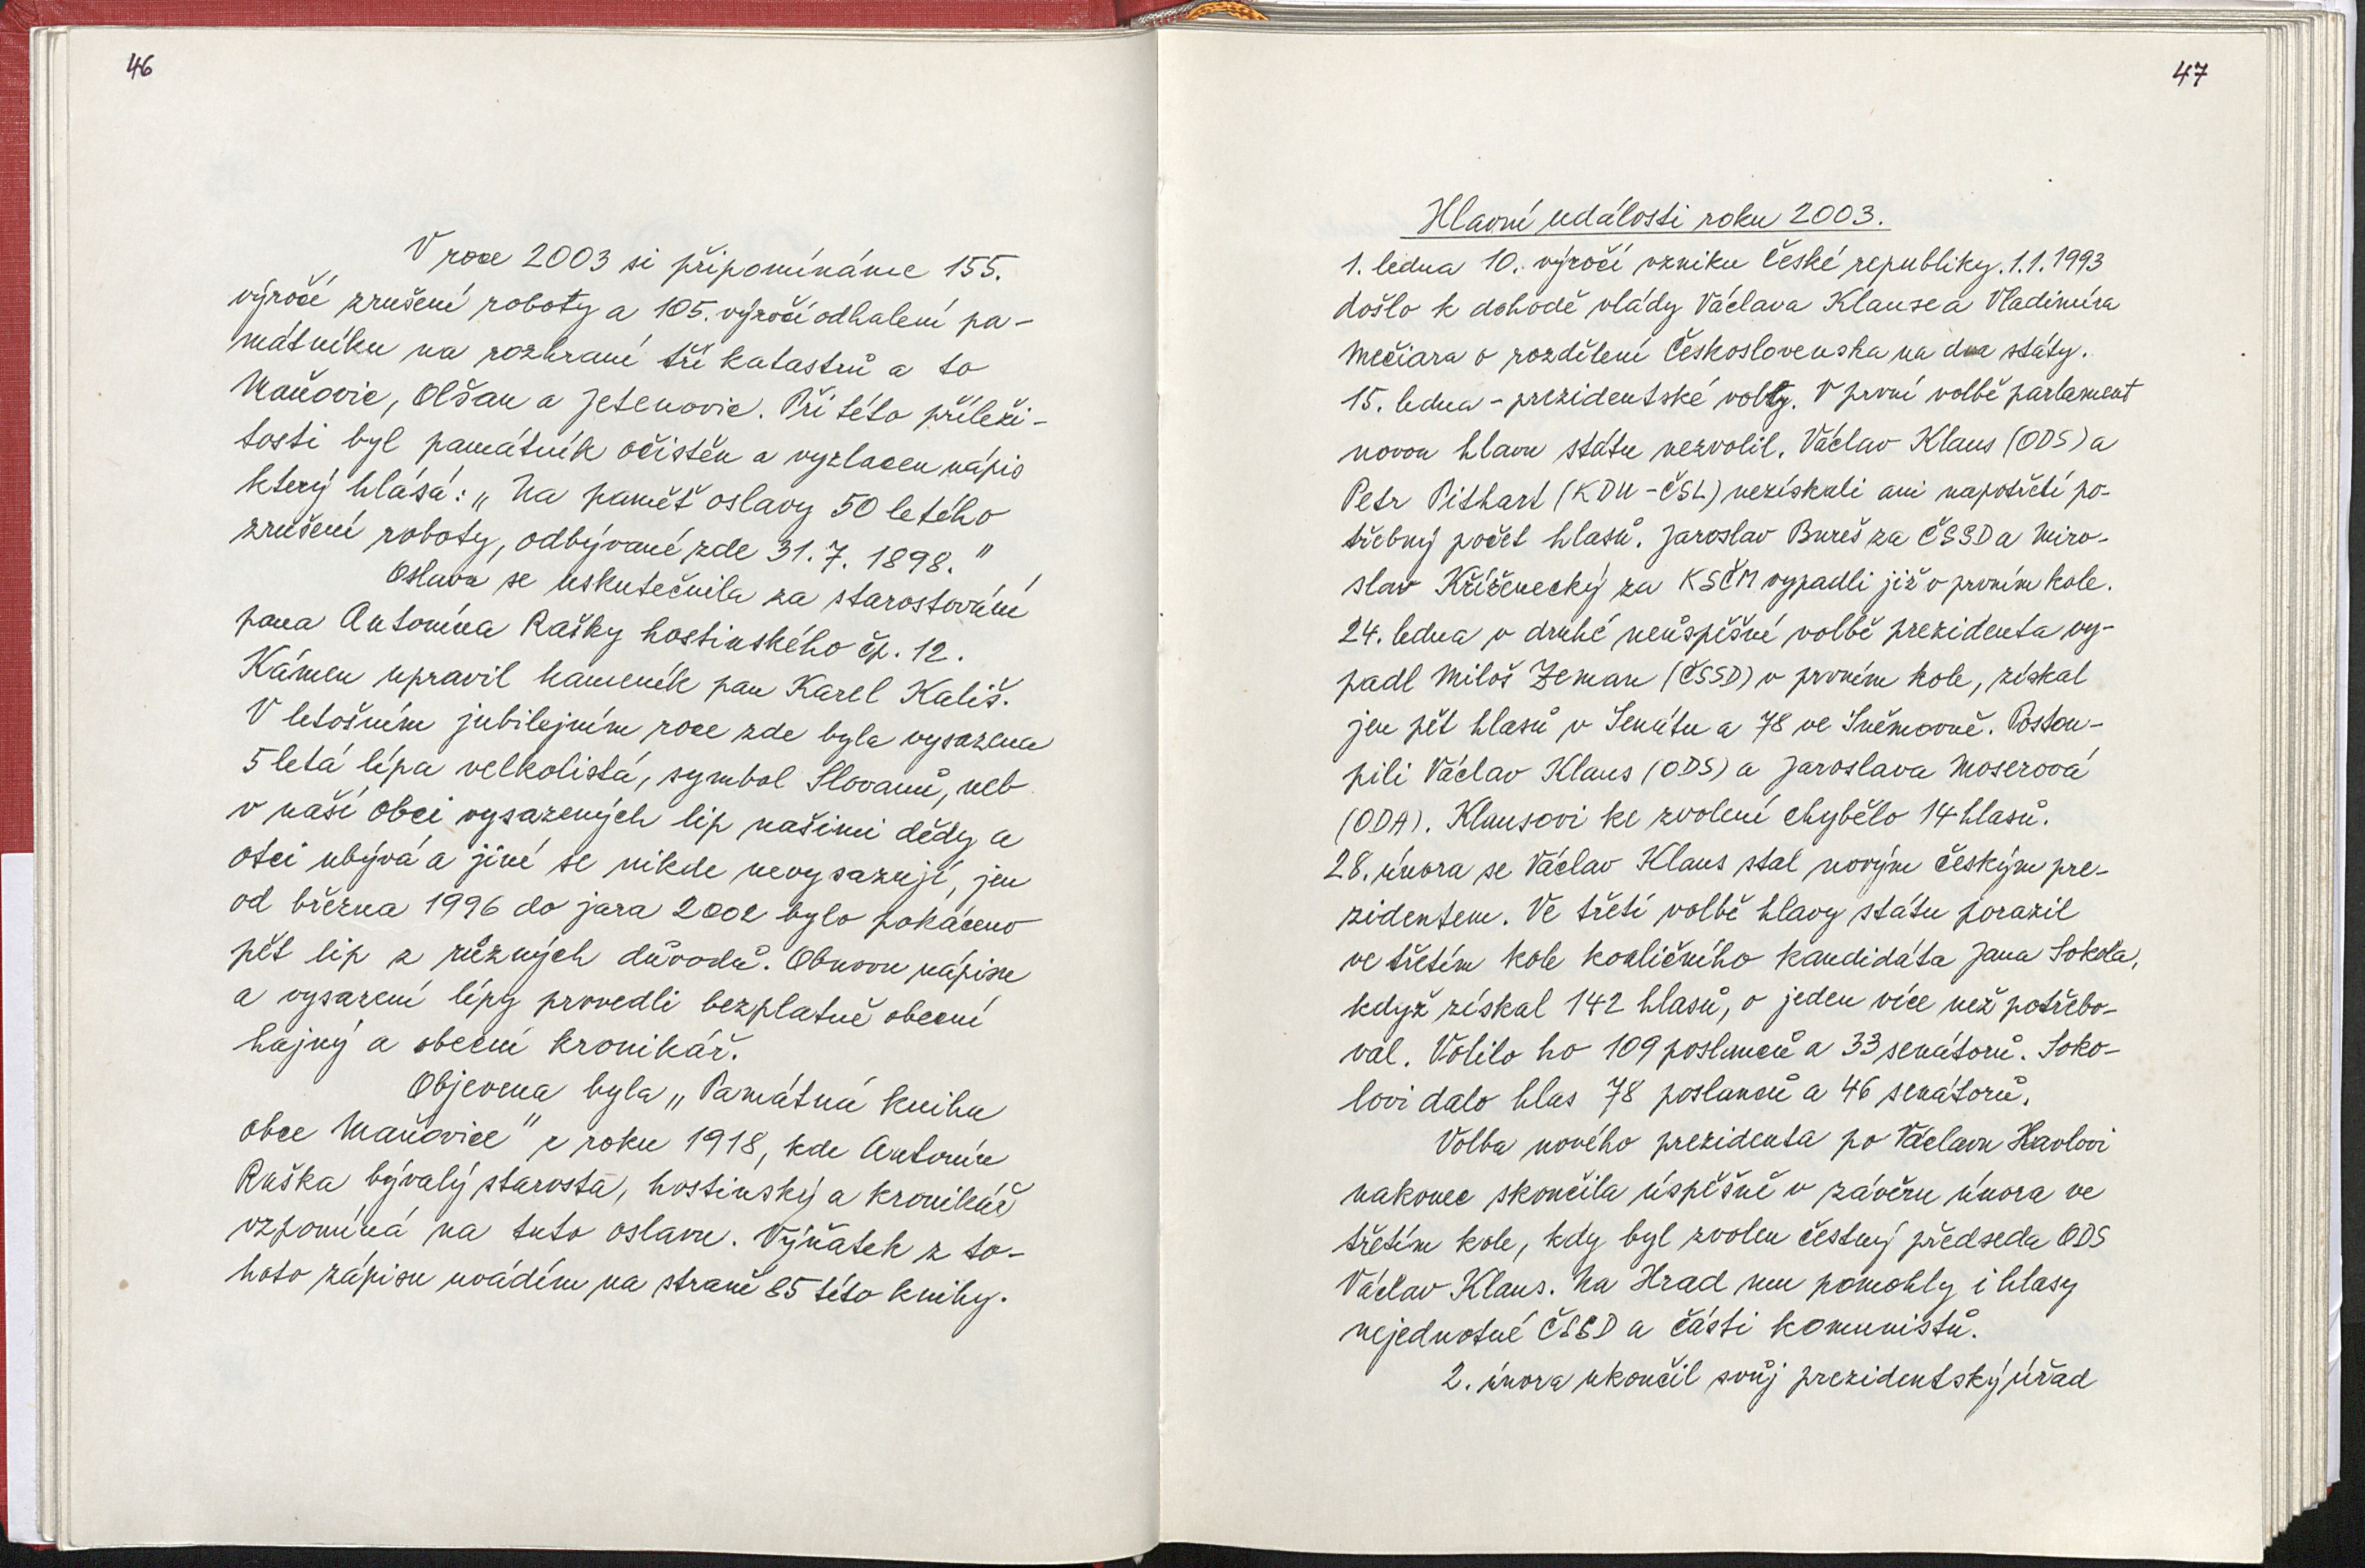 46
V roce 2003 si připomínáme 155.
výročí zrušení roboty a 105. výročí odhalení pa-
mátníku na rozhraní tří katastrů a to
Maňovic, Olšan a Jetenovic. Při této příleži-
tosti byl památník očistěn a vyzlacen nápis
který hlásá: „Na paměť oslavy 50 letého
zrušení roboty, odbývané zde 31. 7. 1898."
Oslava se uskutečnila za starostování
pana Antonína Rašky hostinského čp. 12.
Kámen upravil kameník pan Karel Kališ.
V letošním jubilejním roce zde byla vysazena
5 letá lípa velkolistá, symbol Slovanů, neb
v naší obci vysazených lip našimi dědy a
otci ubývá a jiné se nikde nevysazují, jen
od března 1996 do jara 2002 bylo pokáceno
pět lip z různých důvodů. Obnovu nápisu
a vysazení lípy provedli bezplatně obecní
hajný a obecní kronikář.
Objevena byla „Památná kniha
obce Maňovice" z roku 1918, kde Antonín
Raška bývalý starosta, hostinský a kronikář
vzpomíná na tuto oslavu. Výňatek z to-
hoto zápisu uvádím na straně 85 této knihy.
47
Hlavní události roku 2003.
1. ledna 10. výročí vzniku České republiky. 1.1.1993
došlo k dohodě vlády Václava Klause a Vladimíra
Mečiara o rozdělení Československa na dva státy.
15. ledna - prezidentské volby. V první volbě parlament
novou hlavu státu nezvolil. Václav Klaus (ODS) a
Petr Pithart (KDU-ČSL) nezískali ani napotřetí po-
třebný počet hlasů. Jaroslav Bureš za ČSSD a Miro-
slav Kříženecký za KSČM vypadli již v prvním kole.
24. ledna v druhé neúspěšné volbě prezidenta vy-
padl Miloš Zeman (ČSSD) v prvním kole, získal
jen pět hlasů v Senátu a 78 ve Sněmovně. Postou-
pili Václav Klaus (ODS) a Jaroslava Moserová
(ODA). Klausovi ke zvolení chybělo 14 hlasů.
28. února se Václav Klaus stal novým českým pre-
zidentem. Ve třetí volbě hlavy státu porazil
ve třetím kole koaličního kandidáta Jana Sokola,
když získal 142 hlasů, o jeden více než potřebo-
val. Volilo ho 109 poslanců a 33 senátorů. Soko-
lovi dalo hlas 78 poslanců a 46 senátorů.
Volba nového prezidenta po Václavu Havlovi
nakonec skončila úspěšně v závěru února ve
třetím kole, kdy byl zvolen čestný předseda ODS
Václav Klaus. Na Hrad mu pomohly i hlasy
nejednotné ČSSD a části komunistů.
2. února ukončil svůj prezidentský úřad